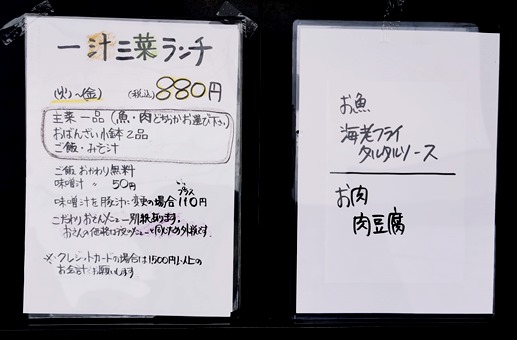 一汁三菜ランチ
(火)~(金) (税込) 880円
主菜一品(魚・肉どちらかお選び下さい)
おばんざい小鉢2品
ご飯・みそ汁
ご飯おかわり無料
味噌汁 〃 50円
プラス
味噌汁を豚汁に変更の場合110円
こだわりおでんメニュー別紙あります。
おでんの価格は夜のメニューと同じため外税です。
※クレジットカードの場合は1500円以上の
お会計でお願いします
お魚
海老フライ
タルタルソース
お肉
肉豆腐